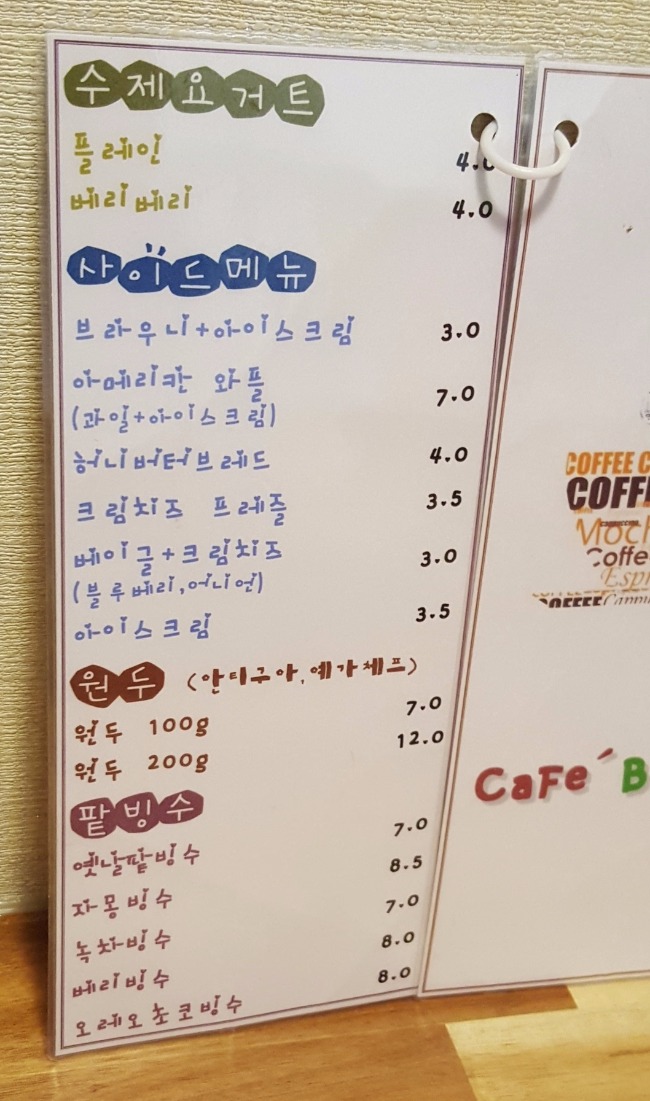 수제요거트
플레인 4.0
베리베리 4.0
사이드메뉴
브라우니+아이스크림 3.0
아메리칸 와플 7.0
(과일+아이스크림)
허니버터브레드 4.0
크림치즈 프레즐 3.5
베이글+크림치즈 3.0
(블루베리,어니언)
아이스크림 3.5
원두 (안티구아,예가체프)
원두 100g 7.0
원두 200g 12.0
팥빙수
옛날팥빙수 7.0
자몽빙수 8.5
녹차빙수 7.0
베리빙수 8.0
오레오초코빙수 8.0
COFFEE C
COFF
Moch
Coffe
Espr
COFFEE Cappu
CaFe´ B